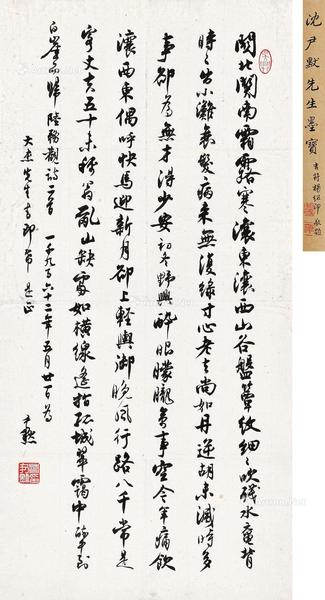 關北關南霜露寒瀼東瀼西山谷盤簟紋細細吹殘水黿背
時時出小灘衰髮病來無復綠寸心老去尚如丹逆胡未滅時多
事卻為無才得少安 初冬野興 醉眼朦朧萬事空今年痛飲
瀼西東偶呼快馬迎新月卻上輕輿御晚風行路八千常是
客丈夫五十未稱翁亂山缺處如橫線遙指孤城翠靄中 醉中到
白崖而歸 陸務觀詩二首 一千九百六十二年五月廿一日為
大杰先生 即希 是正
尹默
沈尹默先生墨寶